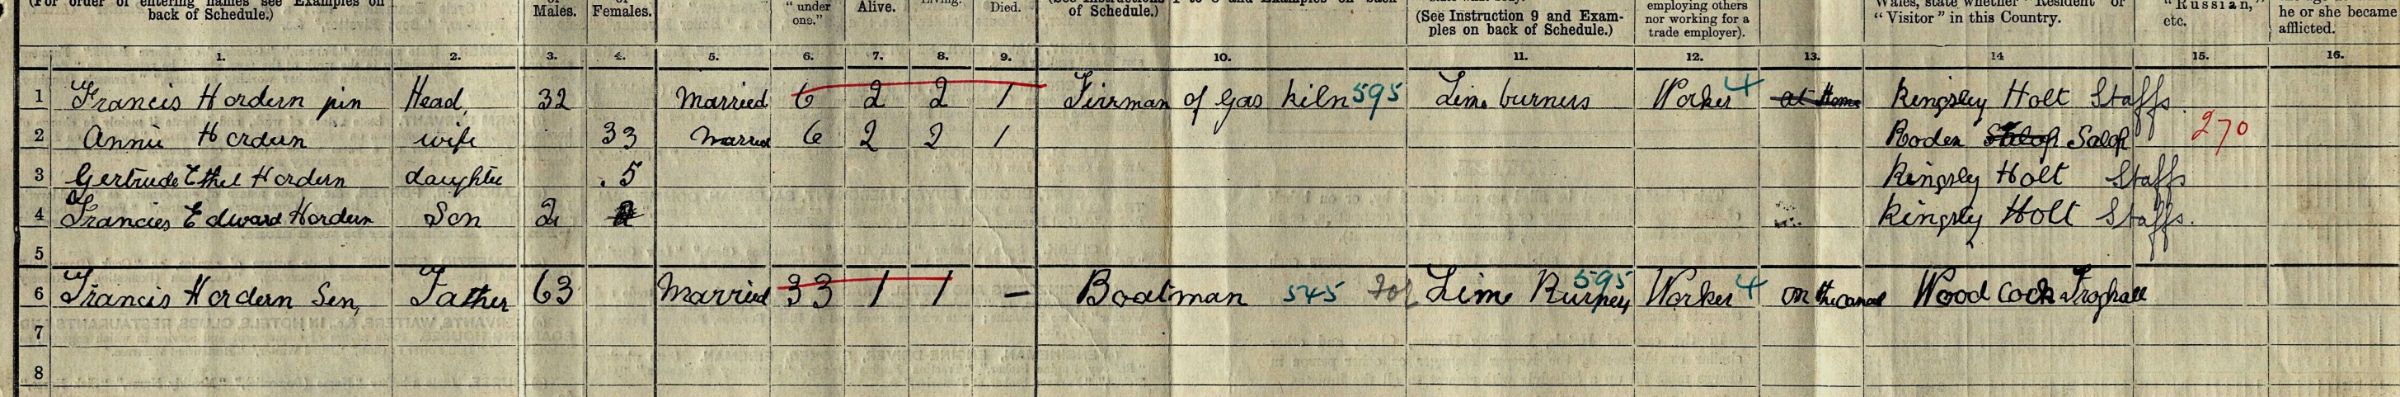 (For order of entering names see Examples on back of Schedule.) Males. Females. "under one." Alive. Living. Died. of Schedule.) (See Instruction 9 and Examples on back of Schedule.) employing others nor working for a trade employer). Wales, state whether "Resident" or "Visitor" in this Country. "Russian," etc. he or she became afflicted.
1. 2. 3. 4. 5. 6. 7. 8. 9. 10. 11. 12. 13. 14 15. 16.
1 Francis Hordern jun Head 32 Married 6 2 2 1 Fierman of Gas kiln 595 Lime burners Worker 4 at Home Kingsley Holt Staffs
2 Annie Hordern wife 33 Married 6 2 2 1 Roden Salop Salop 270
3 Gertrude Ethel Hordern daughter 5 Kingsley Holt Staffs
4 Francies Edward Hordern Son 2 2 Kingsley Holt Staffs.
5
6 Francis Hordern Sen, Father 63 Married 33 1 1 – Boatman 545 for Lime 595 Worker 4 on the canal Wood Cock Froghall
7
8